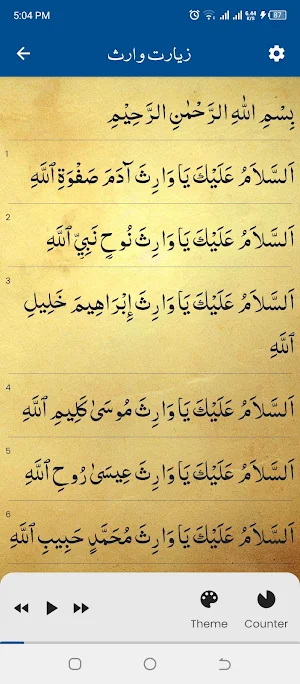 5:04 PM
6.44 K/s
87
زیارت وارث
بِسْمِ اللهِ الرَّحْمٰنِ الرَّحِيْمِ
1
اَلسَّلَامُ عَلَيْكَ يَا وَارِثَ آدَمَ صَفْوَةِ ٱللَّهِ
2
اَلسَّلَامُ عَلَيْكَ يَا وَارِثَ نُوحٍ نَبِيِّ ٱللَّهِ
3
اَلسَّلَامُ عَلَيْكَ يَا وَارِثَ إِبْرَاهِيمَ خَلِيلِ
ٱللَّهِ
4
اَلسَّلَامُ عَلَيْكَ يَا وَارِثَ مُوسَىٰ كَلِيمِ ٱللَّهِ
5
اَلسَّلَامُ عَلَيْكَ يَا وَارِثَ عِيسَىٰ رُوحِ ٱللَّهِ
6
اَلسَّلَامُ عَلَيْكَ يَا وَارِثَ مُحَمَّدٍ حَبِيبِ ٱللَّهِ
Theme Counter